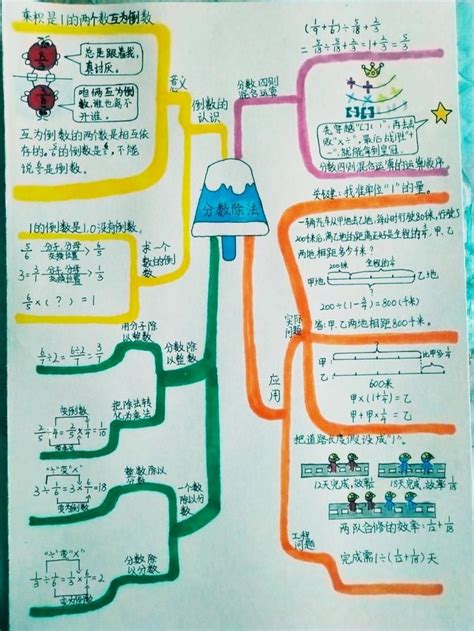 乘积是1的两个数互为倒数
总是跟着我,
真讨厌。
咱俩互为倒
数,谁也离不
开谁。
互为倒数的两个数是相互依
存的。
能
说
是倒数。
意义
倒数的
认识
1的倒数是1.0没有倒数。
5/6 分子、分母 交换位置 6/5
3=3/1 分子、分母 交换位置 1/3
6/5×(?)=1
求一个
数的倒
数
分数除法
分数四则
混合运算
(1/9+1/6)÷5/18+2/3
=5/18÷5/18+2/3=1+2/3=5/3
先穿越"[ ]( )",再去击
败"×÷",最后战胜"+
-",就能拿到皇冠。
分数四则混合运算的运算顺序。
关键:找准单位"1"的量。
一辆汽车从甲地去乙地,每小时行驶80千米,行驶了
200千米后,离乙地的距离正好是全程的
甲、乙
两地相距多少千米?
200千米
全程的
甲地
乙地
=800(千米)
答:甲、乙两地相距800千米。
实际
问题
应用
甲
乙
600米
甲×(1+1/4)=乙
甲+甲×1/4=乙
把道路长度假设成"1"。
12天完成,效率1/12
18天完成,效率1/18
两队合修的效率:1/12+1/18
工程
问题
完成需1÷(1/12+1/18)天
用分子除
以整数
6/7÷2=6÷2/7=3/7
分数除
以整数
把除法转
化为乘法
变倒数
2/5÷4=2/5×1/4=1/10
整数除以
分数
"÷"变"×"
3÷1/6=3×6/1=18
变为倒数
一个数
除以分
数
分数除
以分数
"÷"变"×"
1/3÷1/6=1/3×6/1=2
变为倒数